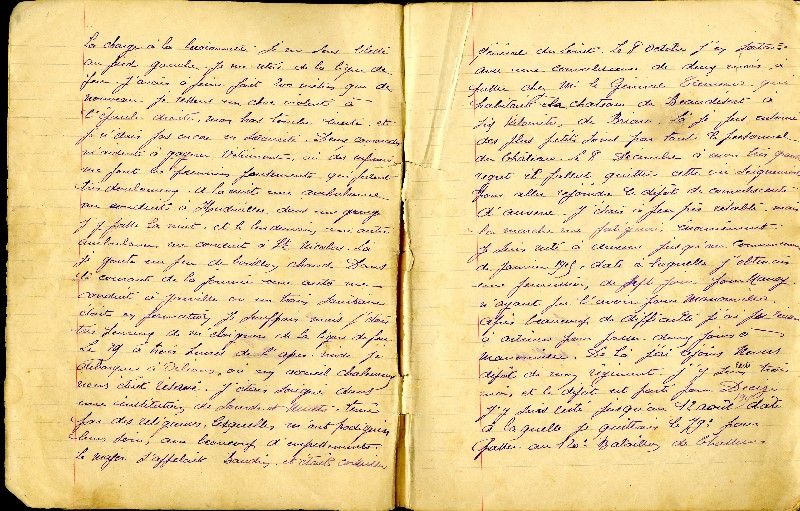 La charge à la baïonnette. Je me sens blessé
au pied gauche. Je me retire de la ligne de
feu. J'avais à peine fait 200 mètres que de
nouveau je ressens un choc violent à
l'épaule droite, mon bras tombe inerte et
je n'étais pas encore en sécurité. Deux camarades
m'aident à gagner Vitrimont, où des infirmiers
me font les premiers pansements qui furent
très douloureux. A la nuit une ambulance
me conduit à Hudiviller dans une grange
J'y passe la nuit, et le lendemain une autre
ambulance me conduit à St Nicolas. Là
je goute un peu de bouillon chaud. Dans
le courant de la journée une auto me
conduit à Jarville où un train sanitaire
était en formation, je souffrais mais j'étais
très heureux de m'éloigner de la ligne de feu.
Le 29 à trois heures de l'après midi je
débarque à Orléans, où un accueil chaleureux
nous était réservé. J'étais soigné dans
une institution de Sourds et Muets tenue
par des religieuses, lesquelles m'ont prodigué
leurs soins avec beaucoup d'empressement.
Le major s'appelait et était conseiller
général du Loiret. Le 8 Octobre j'en partais
avec une convalescence de deux mois à
passer chez Mr le qui
habitait le Château de Beaudésert à
six kilomètres de Briare. Là je fus entouré
des plus petits soins par tout le personnel
du Château. Le 8 Décembre à mon très grand
regret il fallut quitter cette vie seigneuriale
pour aller rejoindre le dépôt de convalescents
d'Auxerre. J'étais à peu près rétabli mais
la marche me fatiguait énormément.
Je suis resté à Auxerre jusqu'au commencement
de Janvier 1915, date à laquelle j'obtenais
une permission de sept jours pour Nancy
n'ayant pu l'avoir pour
Après beaucoup de difficulté j'ai pu
à passer deux jours à
De là j'ai rejoins Nevers
dépôt de mon régiment. J'y suis resté trois
mois et le dépôt est parti pour Decize
J'y suis resté jusqu'au 12 août 1915 date
à laquelle je quittais le 79e pour
passer au 20e Bataillon de Chasseurs